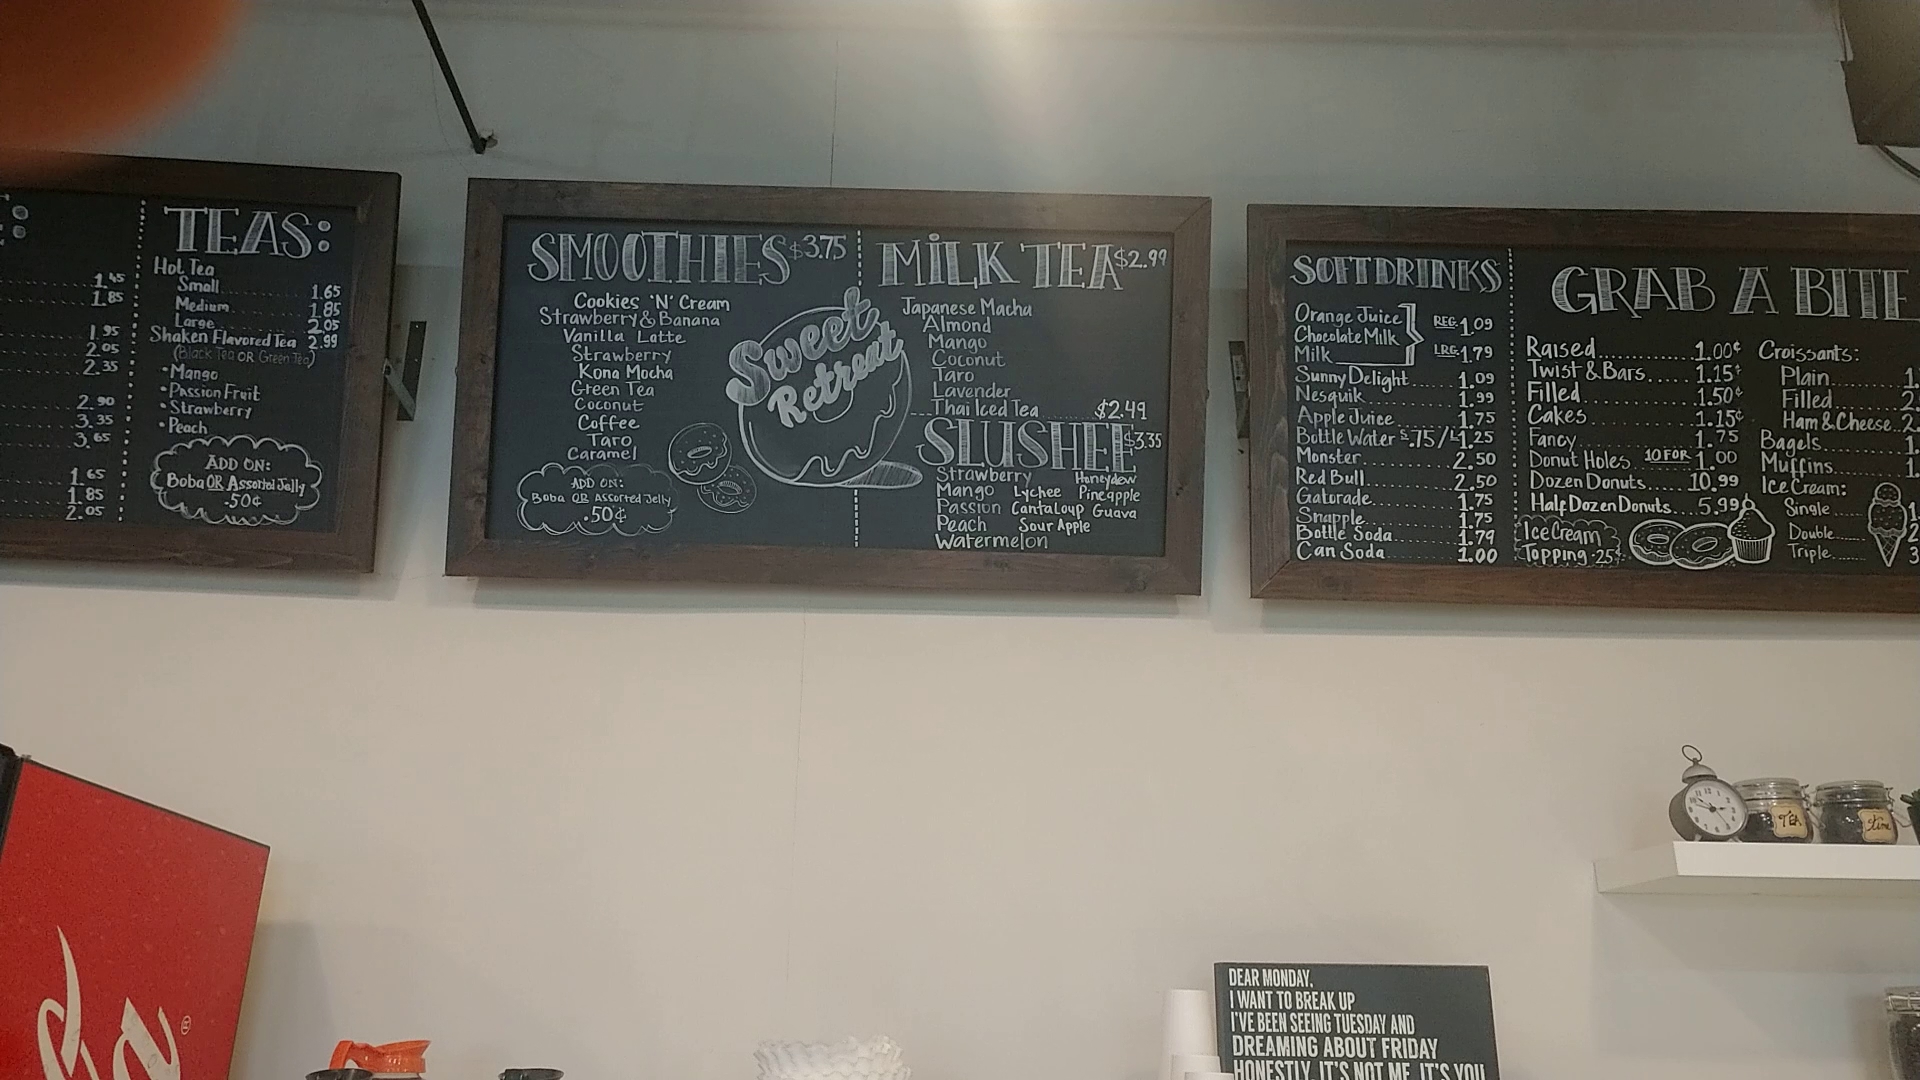 1.45
1.85
1.95
2.05
2.35
2.90
3.35
3.65
1.65
1.85
2.05
TEAS:
Hot Tea
Small 1.65
Medium 1.85
Large 2.05
Shaken Flavored Tea 2.99
(Black Tea OR Green Tea)
• Mango
• Passion Fruit
• Strawberry
• Peach
ADD ON:
Boba OR Assorted Jelly
.50¢
SMOOTHIES $3.75
Cookies 'N' Cream
Strawberry & Banana
Vanilla Latte
Strawberry
Kona Mocha
Green Tea
Coconut
Coffee
Taro
Caramel
ADD ON:
Boba OR Assorted Jelly
.50¢
Sweet
Retreat
MILK TEA $2.99
Japanese Macha
Almond
Mango
Coconut
Taro
Lavender
Thai Iced Tea $2.49
SLUSHEE $3.35
Strawberry Honeydew
Mango Lychee Pineapple
Passion Cantaloup Guava
Peach Sour Apple
Watermelon
SOFT DRINKS
Orange Juice
Chocolate Milk
Milk
REG 1.09
LRG 1.79
Sunny Delight 1.09
Nesquik 1.99
Apple Juice 1.75
Bottle Water S .75/L 1.25
Monster 2.50
Red Bull 2.50
Gatorade 1.75
Snapple 1.75
Bottle Soda 1.79
Can Soda 1.00
GRAB A BITE
Raised 1.00¢
Twist & Bars 1.15¢
Filled 1.50¢
Cakes 1.15¢
Fancy 1.75
Donut Holes 10 FOR 1.00
Dozen Donuts 10.99
Half Dozen Donuts 5.99
Ice Cream
Topping .25¢
Croissants:
Plain 1.
Filled 2.
Ham & Cheese 2.
Bagels 1.
Muffins 1.
Ice Cream:
Single 1.
Double 2
Triple 3
TEA
DEAR MONDAY,
I WANT TO BREAK UP
I'VE BEEN SEEING TUESDAY AND
DREAMING ABOUT FRIDAY
HONESTLY, IT'S NOT ME, IT'S YOU